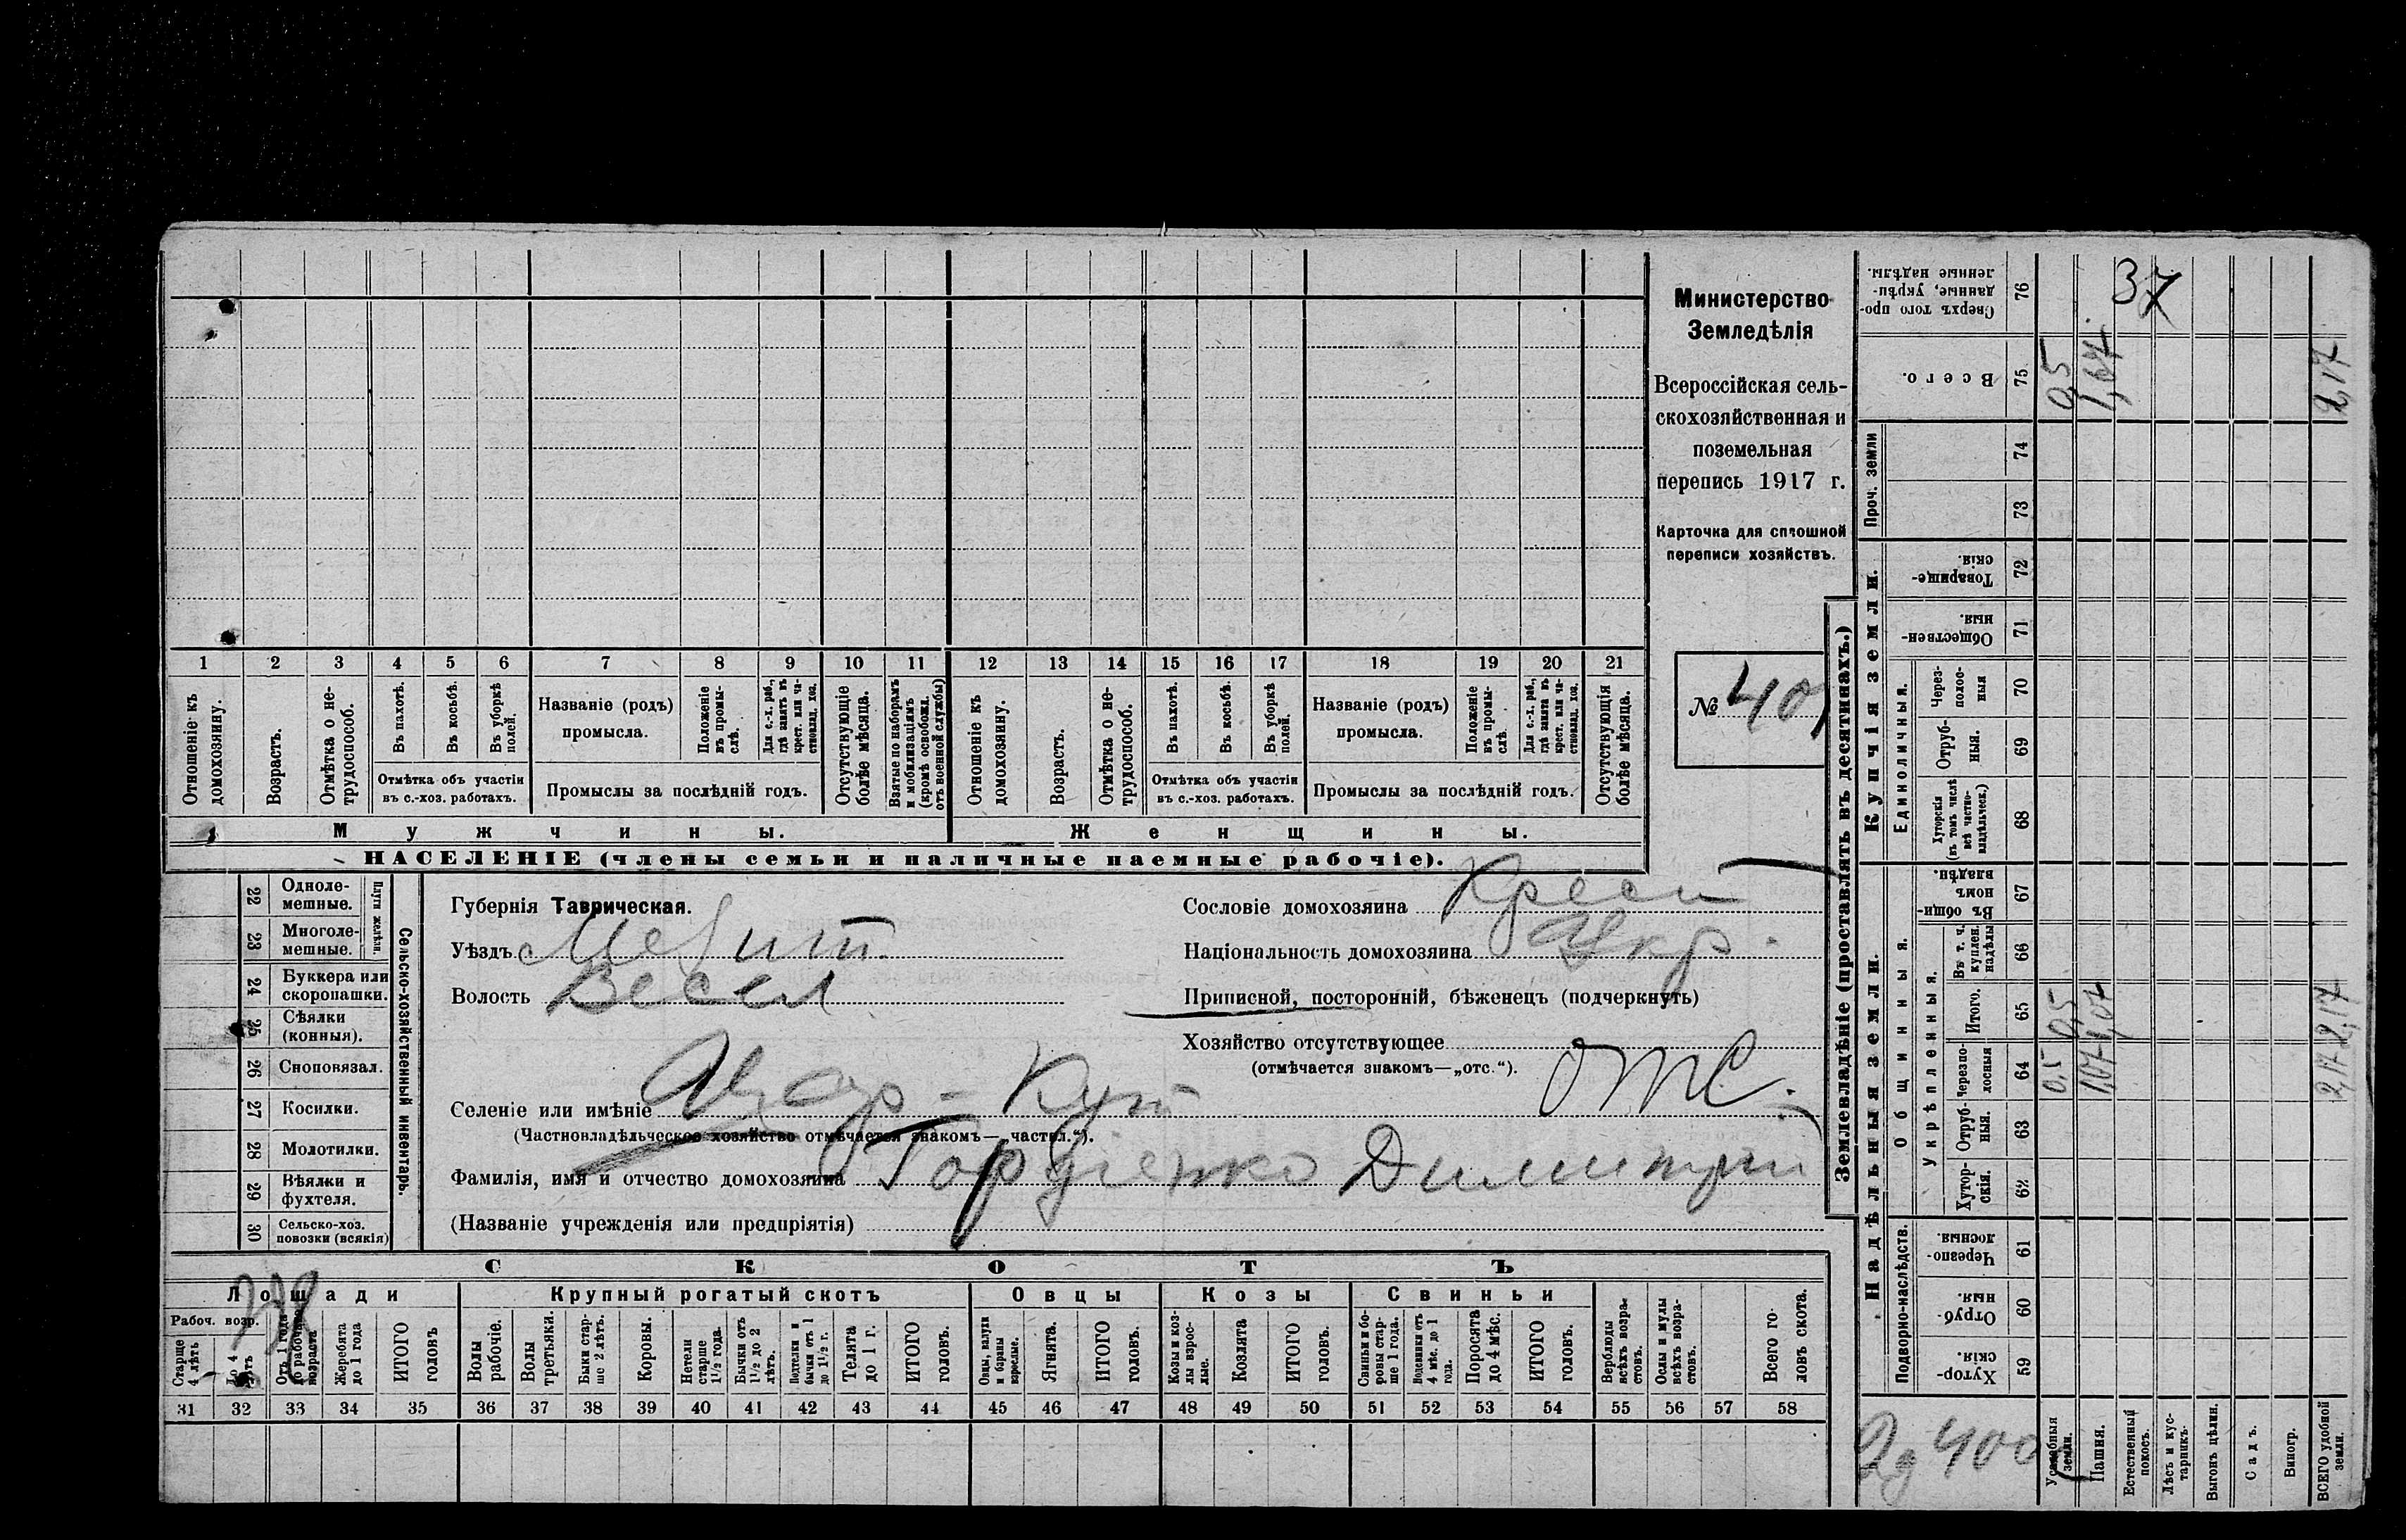 Министерство
Земледѣлія
Всероссійская сель-
скохозяйственная и
поземельная
перепись 1917 г.
Карточка для сплошной
переписи хозяйствъ.
№ 40
1 2 3 4 5 6 7 8 9 10 11 12 13 14 15 16 17 18 19 20 21
Отношеніе къ домохозяину.
Возрастъ.
Отмѣтка о не-трудоспособ.
Въ пахотѣ.
Въ косьбѣ.
Въ уборкѣ полей.
Отмѣтка объ участіи
въ с.-хоз. работахъ.
Названіе (родъ)
промысла.
Положеніе въ промы-слѣ.
Для с.-х. раб., гдѣ занятъ въ крест. или ча-стновлад. хоз.
Промыслы за послѣдній годъ.
Отсутствующіе болѣе мѣсяца.
Взятые по наборамъ и мобилизаціямъ (кромѣ освобожд. отъ военной службы)
Отношеніе къ домохозяину.
Возрастъ.
Отмѣтка о не-трудоспособ.
Въ пахотѣ.
Въ косьбѣ.
Въ уборкѣ полей.
Отмѣтка объ участіи
въ с.-хоз. работахъ.
Названіе (родъ)
промысла.
Положеніе въ промы-слѣ.
Для с.-х. раб., гдѣ занята въ крест. или ча-стновлад. хоз.
Промыслы за послѣдній годъ.
Отсутствующія болѣе мѣсяца.
Мужчины. Женщины.
НАСЕЛЕНІЕ (члены семьи и наличные наемные рабочіе).
22 Одноле-мешные.
23 Многоле-мешные.
Плуги желѣзн.
24 Буккера или скоропашки.
25 Сѣялки (конныя).
26 Сноповязал.
27 Косилки.
28 Молотилки.
29 Вѣялки и фухтеля.
30 Сельско-хоз. повозки (всякія)
Сельско-хозяйственный инвентарь.
Губернія Таврическая.
Уѣздъ Мелит.
Волость Весел
Селеніе или имѣніе
(Частновладѣльческое хозяйство отмѣчается знакомъ—„частвл.“).
Фамилія, имя и отчество домохозяина Гордіенко Димитрій
(Названіе учрежденія или предпріятія)
Сословіе домохозяина Крест
Національность домохозяина Укр.
Приписной, посторонній, бѣженецъ (подчеркнуть)
Хозяйство отсутствующее отс.
(отмѣчается знакомъ—„отс.“).
СКОТЪ
Лошади Крупный рогатый скотъ Овцы Козы Свиньи
Рабоч. возр.
Старше 4 лѣтъ
До 4 лѣтъ
Отъ 1 года до рабочаго возраста
Жеребята до 1 года
ИТОГО головъ
Волы рабочіе.
Волы третьяки.
Быки стар-ше 2 лѣтъ.
Коровы.
Нетели старше 1 1/2 года.
Бычки отъ 1 1/2 до 2 лѣтъ.
Подтелки и бычки отъ 1 до 1 1/2 г.
Телята до 1 г.
ИТОГО головъ.
Овцы, валухи и бараны взрослые.
Ягнята.
ИТОГО головъ.
Козы и коз-лы взрос-лые.
Козлята
ИТОГО головъ.
Свиньи и бо-ровы стар-ше 1 года.
Подсвинки отъ 4 мѣс. до 1 года.
Поросята до 4 мѣс.
ИТОГО головъ.
Верблюды всѣхъ возра-стовъ.
Ослы и мулы всѣхъ возра-стовъ.
Всего го-ловъ скота.
31 32 33 34 35 36 37 38 39 40 41 42 43 44 45 46 47 48 49 50 51 52 53 54 55 56 57 58
Землевладѣніе (проставлять въ десятинахъ.)
Сверхъ того про-данные, укрѣп-ленные надѣлы. 76 37
Всего. 75 0,5 1,67 2,17
Проч. земли 74
73
Купчія земли.
Товарище-скія. 72
Обществен-ныя. 71
Единоличныя.
Через-полос-ныя 70
Отруб-ныя. 69
Хуторскія (въ томъ числѣ всѣ частно-владѣльческ.) 68
Надѣльныя земли.
Общинныя.
Въ общин-номъ владѣн. 67
Укрѣпленныя.
Въ т. ч. куплен. надѣлы 66
Итого. 65 0,5 1,67 2,17
Черезпо-лосныя 64 0,5 1,67 2,17
Отруб-ныя. 63
Хутор-скія. 62
Подворно-наслѣдств.
Черезпо-лосныя. 61
Отруб-ныя. 60
Хутор-скія. 59
2д 400
Усадебныя земли.
Пашня.
Естественный покосъ.
Лѣсъ и кус-тарникъ.
Выгонъ цѣлин.
Садъ.
Виногр.
ВСЕГО удобной земли.